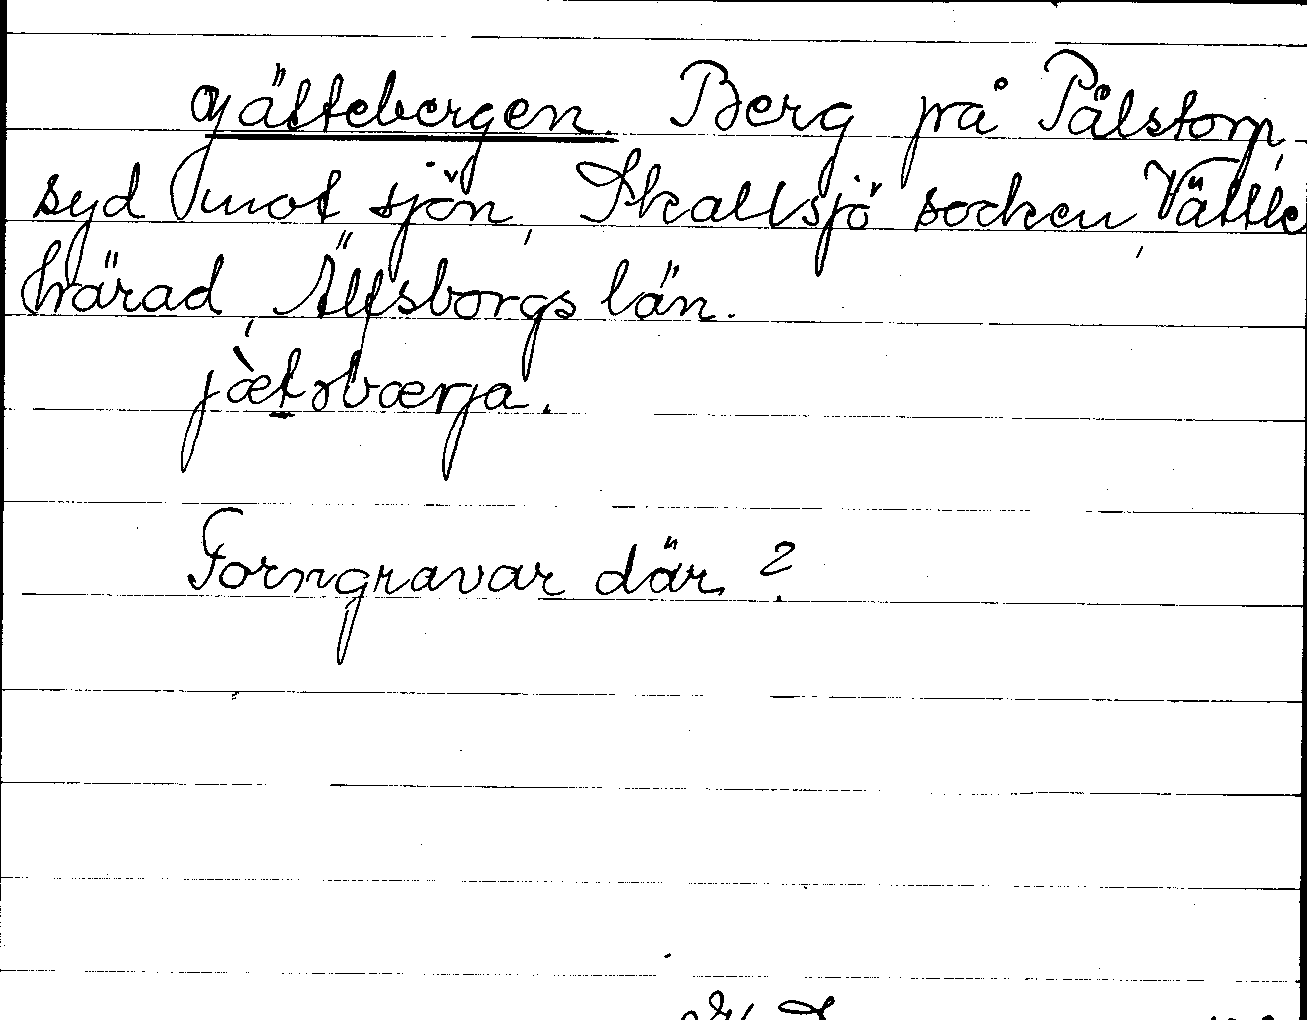 Jättebergen. Berg på Pålstorp,
syd mot sjön, Skallsjö socken, Vättle
härad, Älfsborgs län.
jæ̀təbærja.
Forngravar där?